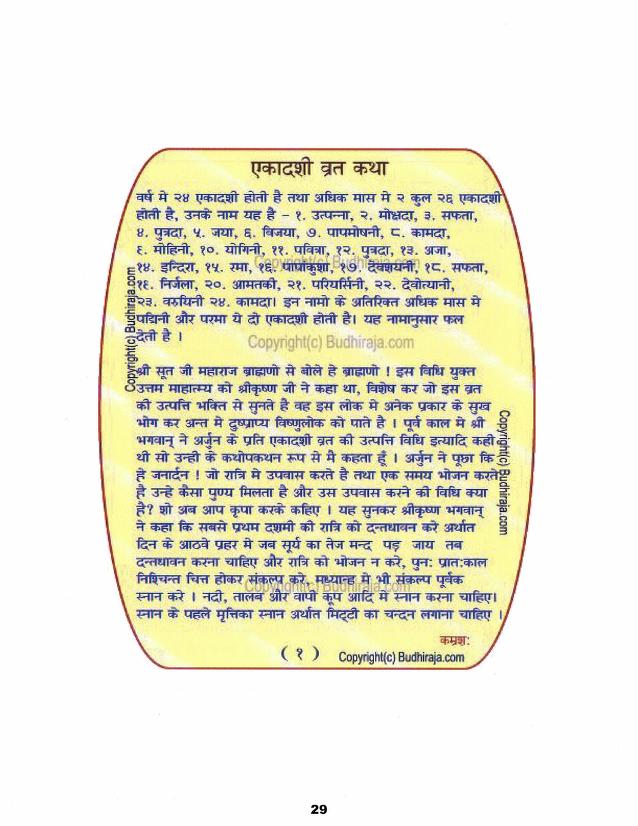 एकादशी व्रत कथा
वर्ष मे २४ एकादशी होती है तथा अधिक मास मे २ कुल २६ एकादशी
होती है, उनके नाम यह है – १. उत्पन्ना, २. मोक्षदा, ३. सफता,
४. पुत्रदा, ५. जया, ६. विजया, ७. पापमोषनी, ८. कामदा,
६. मोहिनी, १०. योगिनी, ११. पवित्रा, १२. पुत्रदा, १३. अजा,
१४. इन्दिरा, १५. रमा, १६. पापांकुशा, १७. देवशयनी, १८. सफता,
१६. निर्जला, २०. आमतकी, २१. परियर्सिनी, २२. देवोत्यानी,
२३. वरुयिनी २४. कामदा। इन नामो के अतिरिक्त अधिक मास मे
पद्यिनी और परमा ये दो एकादशी होती है। यह नामानुसार फल
देती है ।
Copyright(c) Budhiraja.com
Copyright(c) Budhiraja.com
Copyright(c) Budhiraja.com
श्री सूत जी महाराज ब्राह्मणो से बोले हे ब्राह्मणो ! इस विधि युक्त
उत्तम माहात्म्य को श्रीकृष्ण जी ने कहा था, विशेष कर जो इस व्रत
की उत्पत्ति भक्ति से सुनते है वह इस लोक मे अनेक प्रकार के सुख
भोग कर अन्त मे दुष्प्राप्य विष्णुलोक को पाते है । पूर्व काल मे श्री
भगवान् ने अर्जुन के प्रति एकादशी व्रत की उत्पत्ति विधि इत्यादि कही
थी सो उन्ही के कथोपकथन रूप से मै कहता हूँ । अर्जुन ने पूछा कि
हे जनार्दन ! जो रात्रि मे उपवास करते है तथा एक समय भोजन करते
है उन्हे कैसा पुण्य मिलता है और उस उपवास करने की विधि क्या
है? शो अब आप कृपा करके कहिए । यह सुनकर श्रीकृष्ण भगवान्
ने कहा कि सबसे प्रथम दशमी की रात्रि को दन्तधावन करे अर्थात
दिन के आठवे प्रहर मे जब सूर्य का तेज मन्द पड़ जाय तब
दन्तधावन करना चाहिए और रात्रि को भोजन न करे, पुन: प्रात:काल
निश्चिन्त चित्त होकर संकल्प करे, मध्यान्ह मे भी संकल्प पूर्वक
स्नान करे । नदी, तालब और वापी कूप आदि मे स्नान करना चाहिए।
स्नान के पहले मृत्तिका स्नान अर्थात मिट्टी का चन्दन लगाना चाहिए ।
Copyright(c) Budhiraja.com
Copyright(c) Budhiraja.com
कम्रश:
( १ ) Copyright(c) Budhiraja.com
29